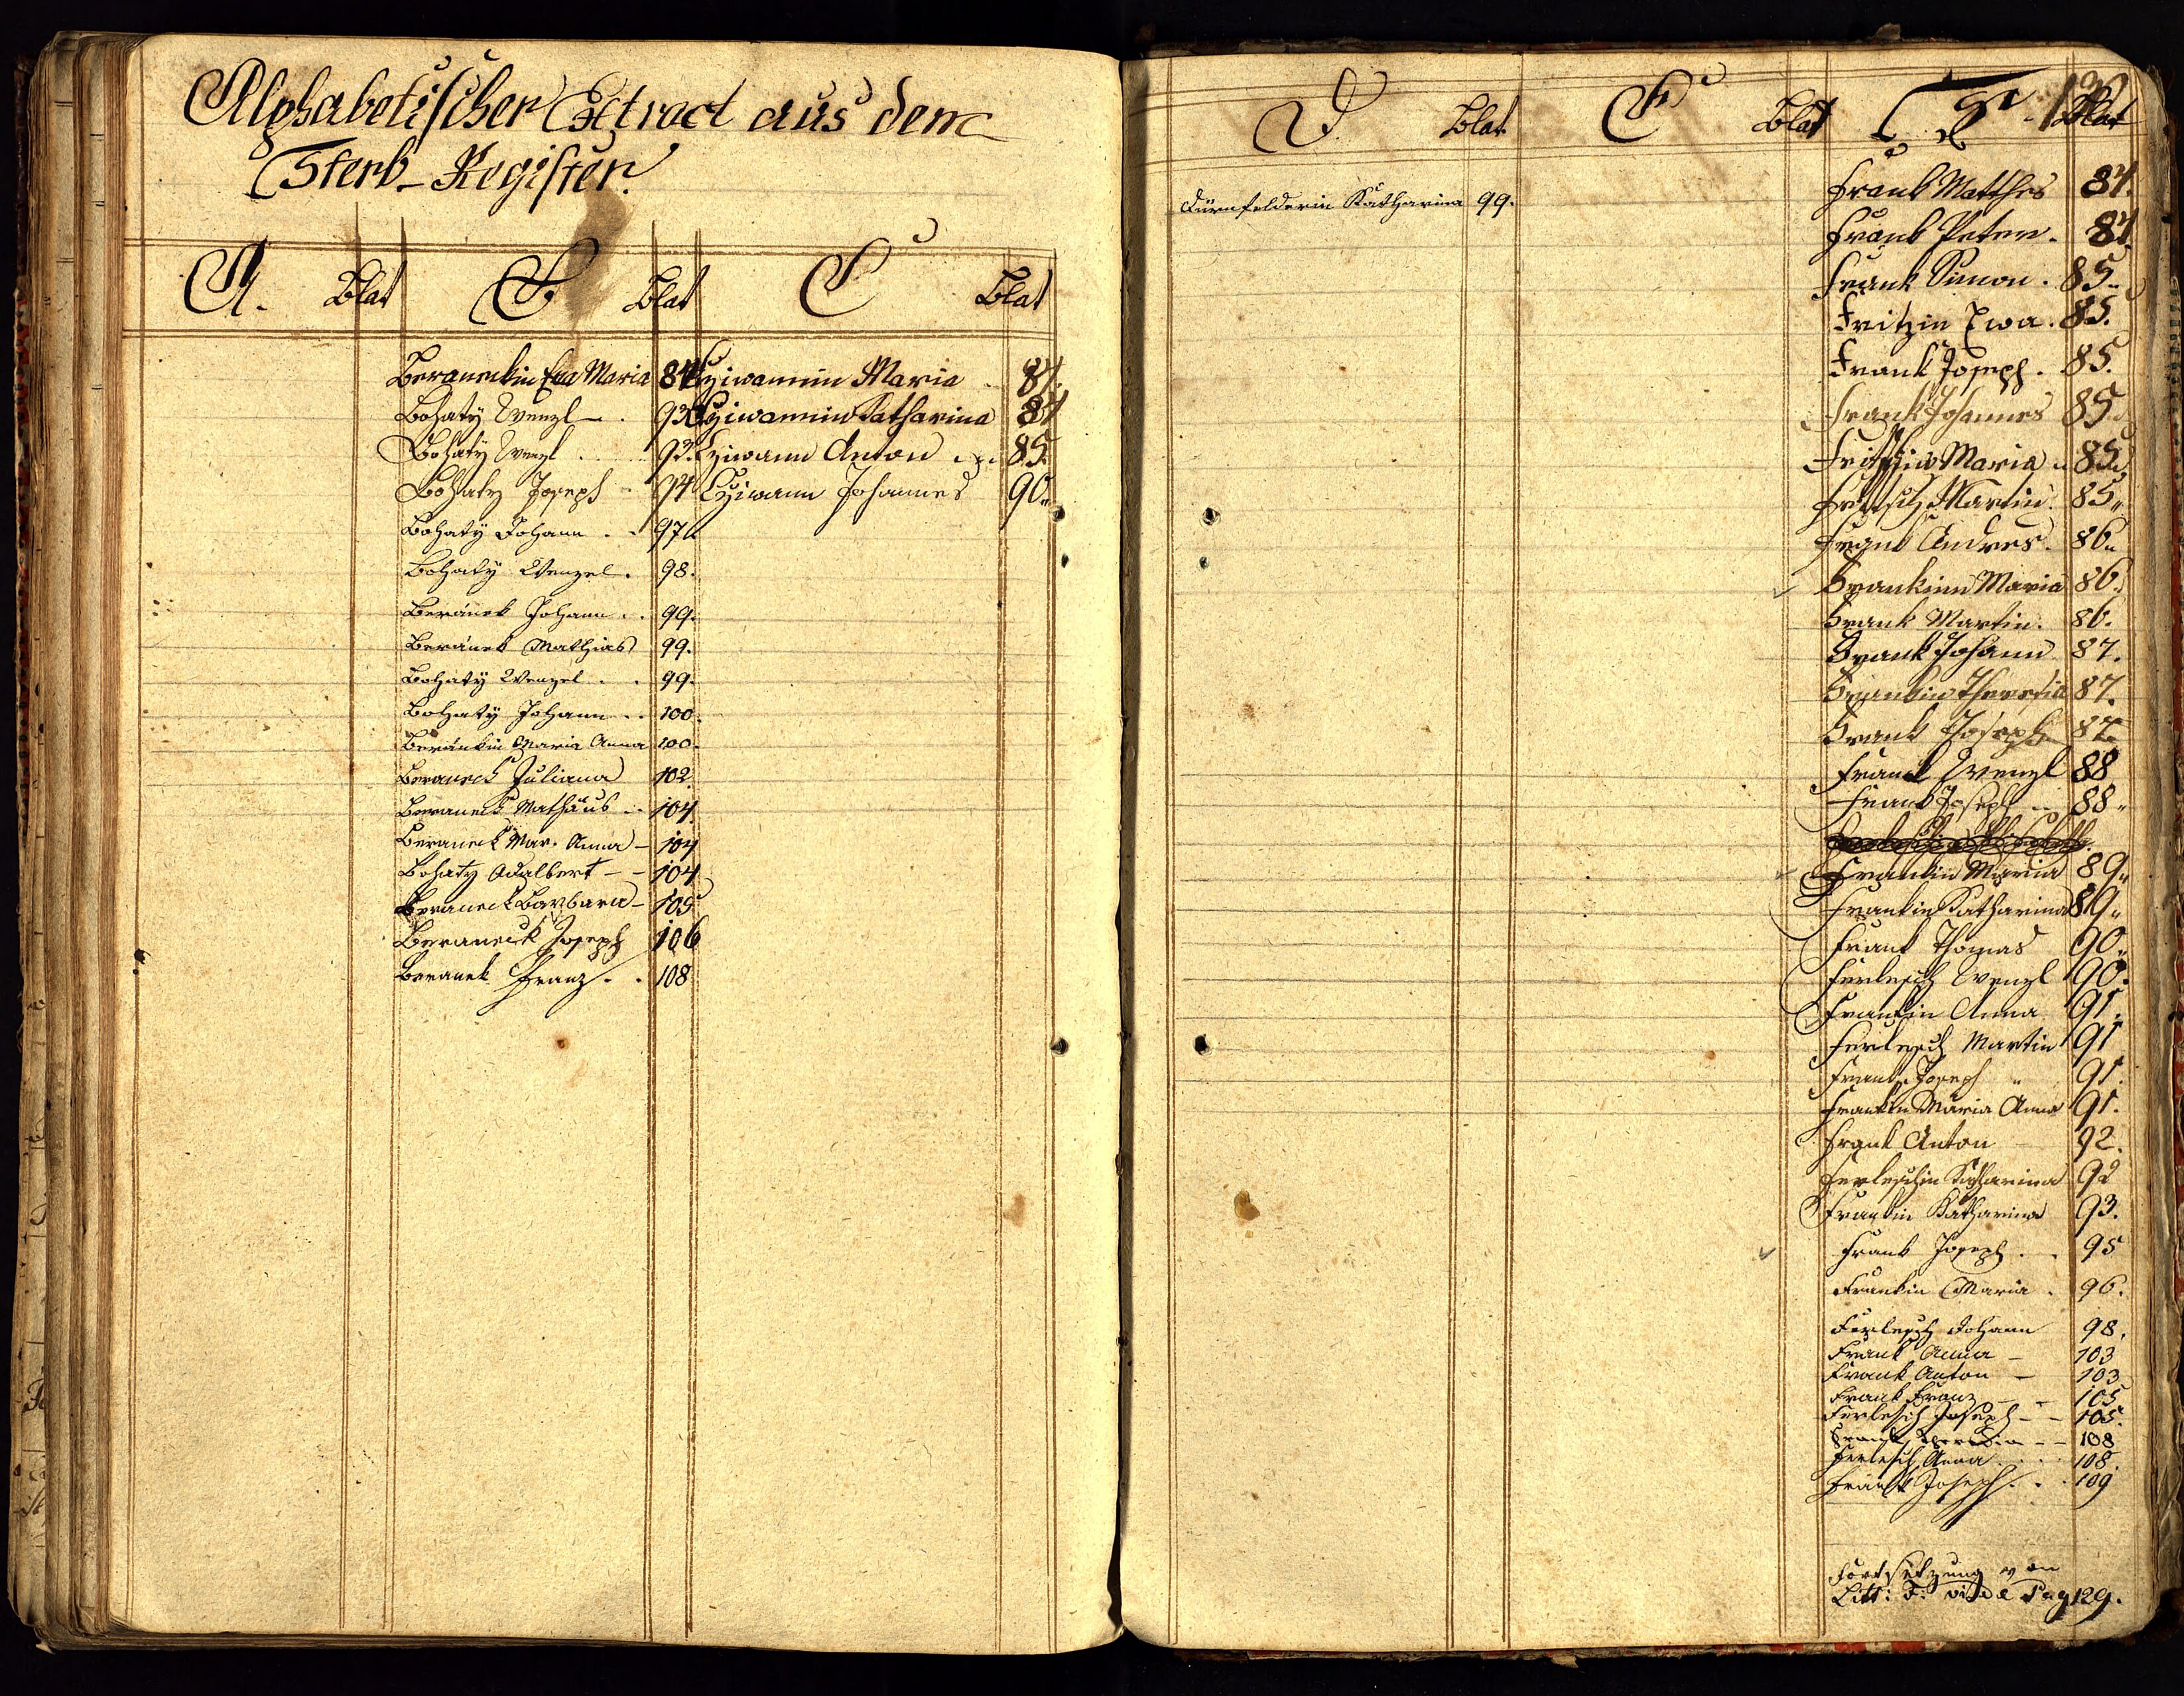 Alphabetischer Extract aus dem
Sterb-Register.
A. Blat B Blat C Blat
Beraneckin Eva Maria 84
Bohaty Wenzl 93
Bohaty Wenzl 93.
Bohaty Joseph 94
Bohaty Johann . . 97
Bohaty Wenzel . 98.
Beránek Johann . . 99.
Beránek Mathias 99.
Bohaty Wenzel . . 99.
Bohaty Johann . . 100.
Beránkin Maria Anna 100.
Beraneck Juliana 102.
Beraneck Mathäus . . 104.
Beraneck Mar. Anna - 104
Bohaty Adalbert - - 104
Beraneck Barbara - 105
Beraneck Joseph 106
Beranek Franz . . 108
Cziwannin Maria . 84.
Cziwannin Katharina 84
Cziwann Anton 85.
Cziwann Johannes 90.
D. Blat E Blat F Blat
Dürnfelderin Katharina 99.
Frank Matthes 84.
Frank Peter. 84.
Frank Simon . 85.
Fritzin Ewa . 85.
Frank Joseph . 85.
Frank Johannes 85.
Maria 85.
Martin. 85.
Frank Andres. 86.
Frankinn Maria 86.
Frank Martin. 86.
Frank Johann 87.
Frankin Theresia 87.
Frank Joseph 87.
Frank Wenzl 88
Frank Joseph 88.
Frankin Maria 89.
Frankin Katharina 89.
Frank Thomas 90.
Ferlesch Wenzl 90.
Frankin Anna 91.
Ferlesch Martin 91
Frank Joseph 91.
Frankin Maria Anna 91.
Frank Anton 92.
Ferleschin Katharina 92
Frankin Katharina 93.
Frank Joseph . . 95
Frankin Maria . 96.
Ferlesch Johann 98.
Frank Anna - 103
Frank Anton - 103
Frank Franz - 105
Ferlesch Joseph - - 105.
Frank Theresia - - 108
Ferlesch Anna . . . 108.
Frank Joseph . . . 109
Fortsetzung von
Litt: F: vide Pag 129.